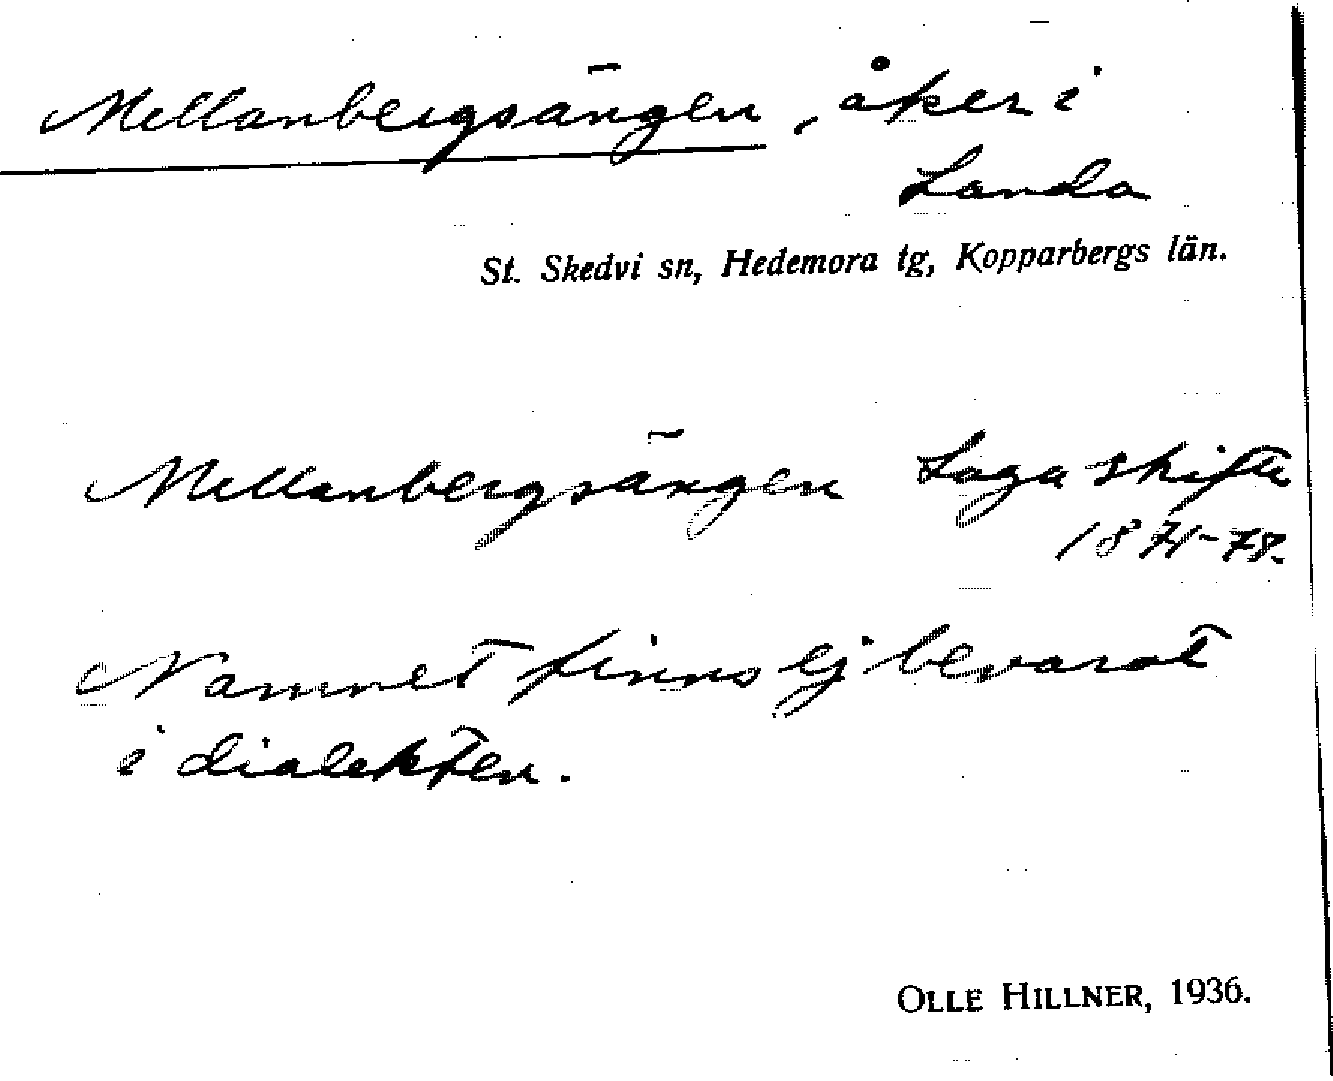 Mellanbergsängen, åker i
Landa
St. Skedvi sn, Hedemora tg, Kopparbergs län.
Mellanbergsängen Laga skifte
1871-78.
Namnet finns ej bevarat
i dialekten.
OLLE HILLNER, 1936.